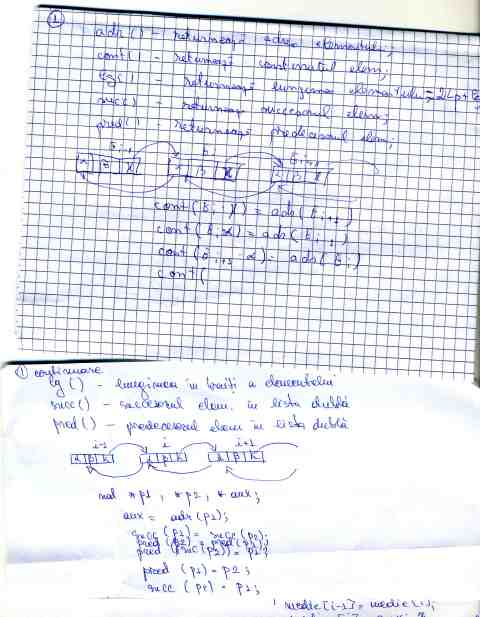 ①
adr() - returnează adresa elementului;
cont() - returnează conținutul elem;
lg() - returnează lungimea elementului = 2Lp+
succ() - returnează succesorul elem;
pred() - returnează predecesorul elem;
cont(ti, γ) = adr(ti+1)
cont(ti, α) = adr(ti-1)
cont(ti+1, α) = adr(ti)
cont(
① continuare
lg() - lungimea în biți a elementului
succ() - succesorul elem. în lista dublă
pred() - predecesorul elem în lista dublă
i-1 i i+1
nod *p1, *p2, *aux;
aux = adr(p1);
succ(p1) = succ(p2);
pred(p2) = pred(p1);
pred(succ(p2)) = p1;
pred(p1) = p2;
succ(p2) = p1;
medie[i-1] = medie[i];